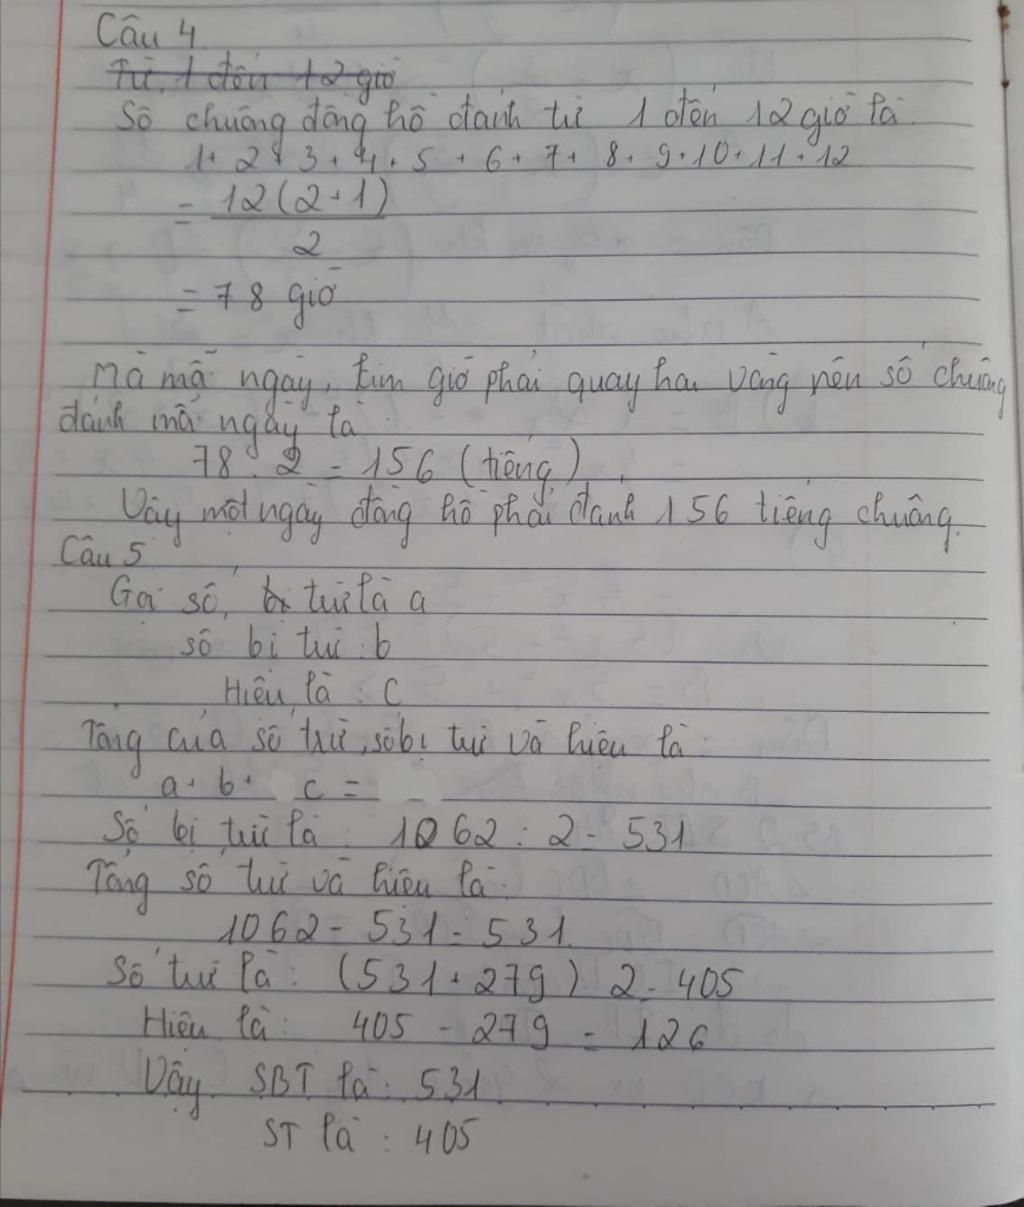 Câu 4.
Từ 1 đến 12 giờ
Số chuông đồng hồ đánh từ 1 đến 12 giờ là:
1 + 2 + 3 + 4 + 5 + 6 + 7 + 8 + 9 + 10 + 11 + 12
= 12(2+1)
2
= 78 giờ
Mà mỗi ngày, kim giờ phải quay hai vòng nên số chuông
đánh mỗi ngày là
78 . 2 = 156 (tiếng)
Vậy một ngày đồng hồ phải đánh 156 tiếng chuông.
Câu 5
Gọi số trừ là a
số bị trừ : b
Hiệu là : c
Tổng của số trừ, số bị trừ và hiệu là :
a + b + c =
Số bị trừ là : 1062 : 2 = 531
Tổng số trừ và hiệu là :
1062 - 531 = 531.
Số trừ là : (531 + 279) : 2 = 405
Hiệu là : 405 - 279 = 126
Vậy SBT là : 531
ST là : 405